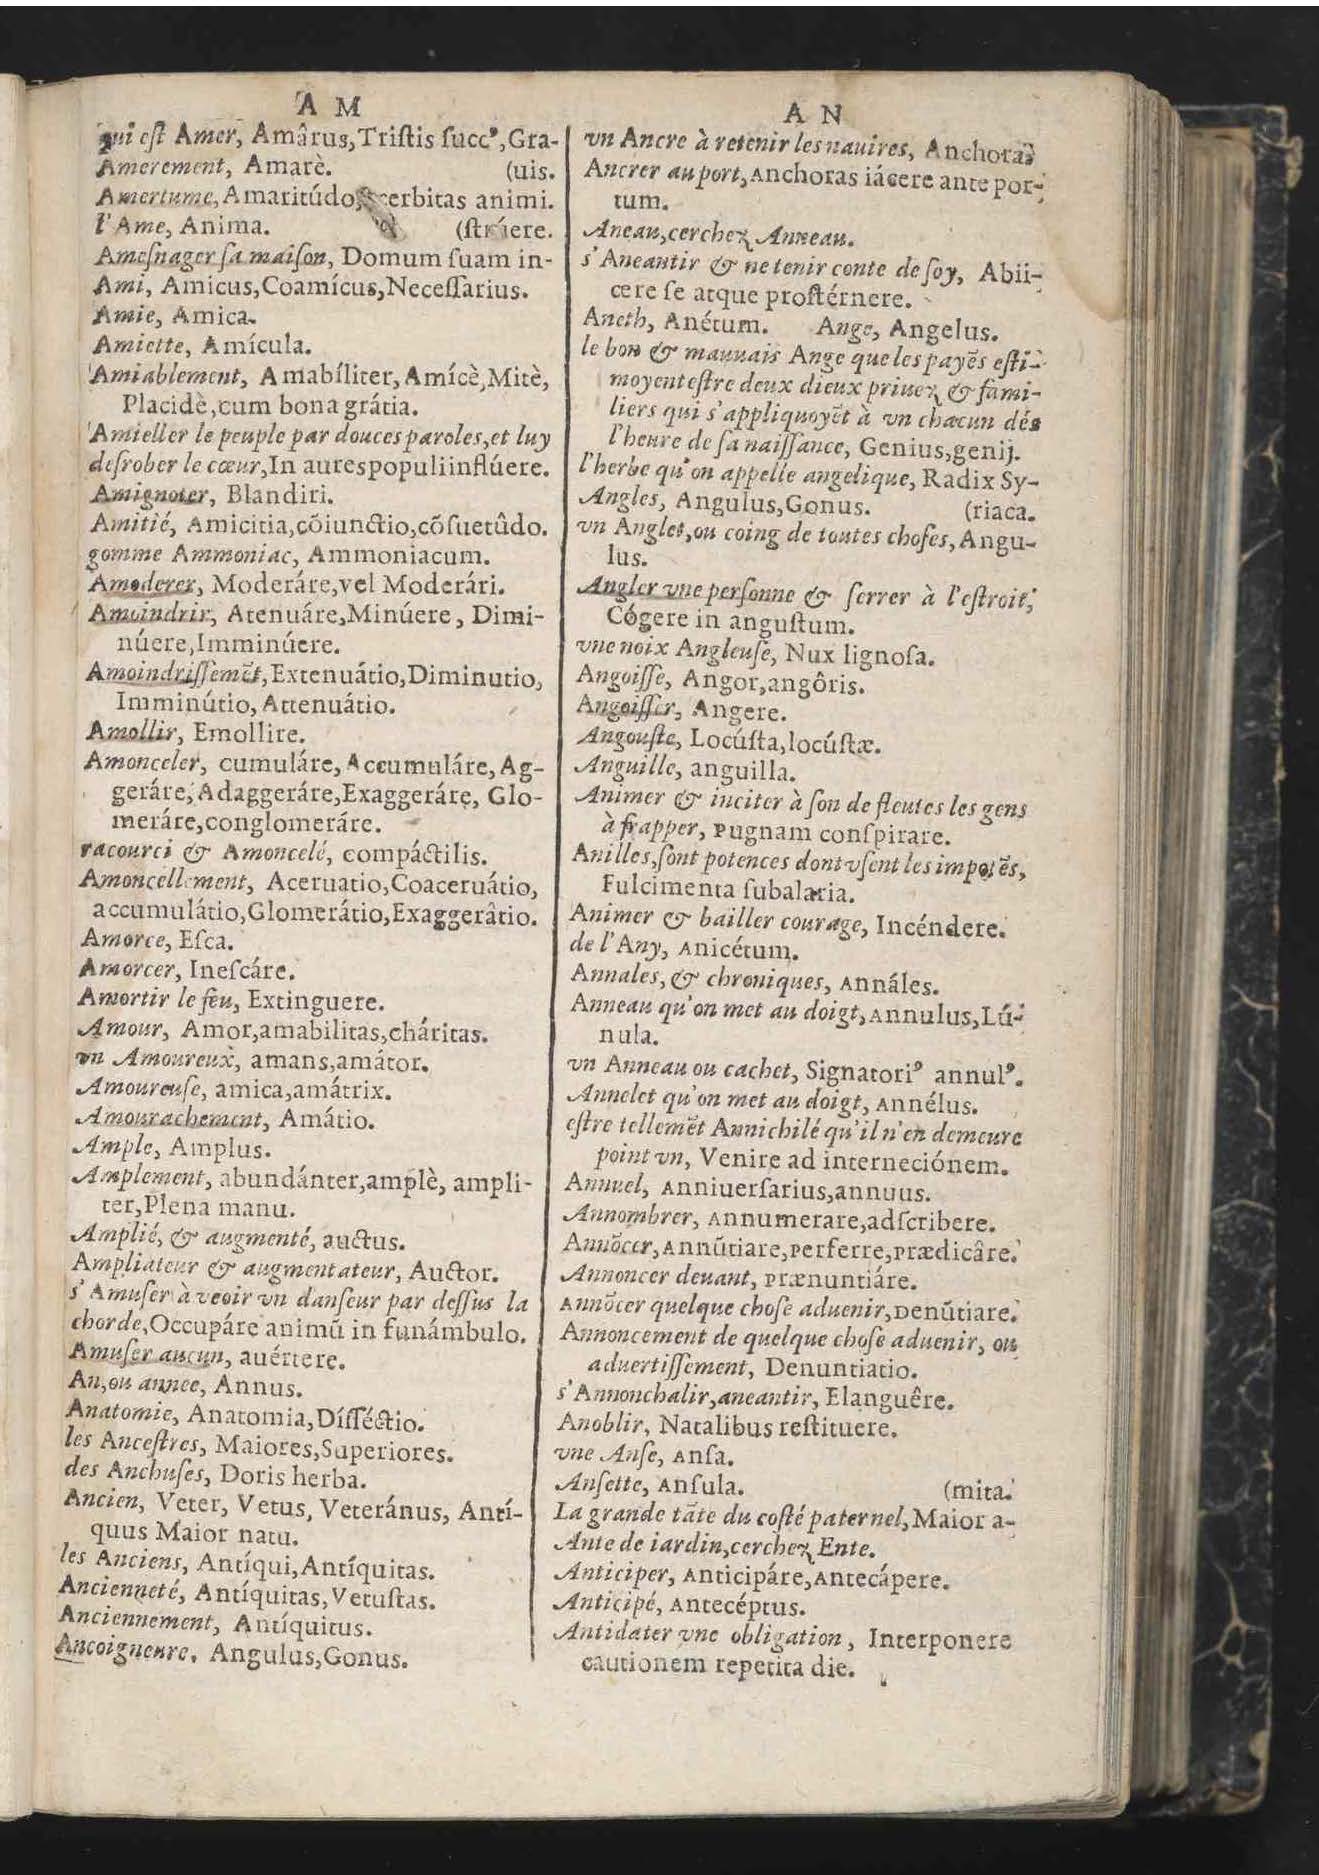 A M
qui eſt Amer, Amârus, Triſtis ſucc⁹, Gra-
Amerement, Amarè. (uis.
Amertume, Amaritúdo, animi.
l'Ame, Anima. (ſtrúere.
Ameſnager ſa maiſon, Domum ſuam in-
Ami, Amicus, Coamícus, Neceſſarius.
Amie, Amica.
Amiette, Amícula.
Amiablement, Amabíliter, Amícè, Mitè,
Placidè, cum bona grátia.
Amieller le peuple par douces paroles, et luy
deſrober le cœur, In aures populi inflúere.
Amignoter, Blandiri.
Amitié, Amicitia, cõiunctio, cõſuetûdo.
gomme Ammoniac, Ammoniacum.
Amoderer, Moderáre, vel Moderári.
Amoindrir, Atenuáre, Minúere, Dimi-
núere, Imminúere.
Amoindriſſemẽt, Extenuátio, Diminutio,
Imminútio, Attenuátio.
Amollir, Emollire.
Amonceler, cumuláre, Accumuláre, Ag-
geráre, Adaggeráre, Exaggeráre, Glo-
meráre, conglomeráre.
racourci & Amoncelé, compáctilis.
Amoncellement, Aceruatio, Coaceruátio,
accumulátio, Glomerátio, Exaggerâtio.
Amorce, Eſca.
Amorcer, Ineſcáre.
Amortir le feu, Extinguere.
Amour, Amor, amabilitas, cháritas.
vn Amoureux, amans, amátor.
Amoureuſe, amica, amátrix.
Amourachement, Amátio.
Ample, Amplus.
Amplement, abundánter, amplè, ampli-
ter, Plena manu.
Amplié, & augmenté, auctus.
Ampliateur & augmentateur, Auctor.
s'Amuſer à veoir vn danſeur par deſſus la
chorde, Occupáre animũ in funámbulo.
Amuſer aucun, auértere.
An, ou annee, Annus.
Anatomie, Anatomia, Díſſéctio.
les Anceſtres, Maiores, Superiores.
des Anchuſes, Doris herba.
Ancien, Veter, Vetus, Veteránus, Antí-
quus Maior natu.
les Anciens, Antíqui, Antíquitas.
Ancienneté, Antíquitas, Vetuſtas.
Anciennement, Antíquitus.
Ancoigneure, Angulus, Gonus.
A N
vn Ancre à retenir les nauires, Anchora.
Ancrer au port, Anchoras iácere ante por-
tum.
Aneau, cerchez Anneau.
s'Aneantir & ne tenir conte de ſoy, Abii-
cere ſe atque proſtérnere.
Aneth, Anétum. Ange, Angelus.
le bon & mauuais Ange que les payẽs eſti-
moyent eſtre deux dieux priuez & fami-
liers qui s'appliquoyẽt à vn chacun dés
l'heure de ſa naiſſance, Genius, genij.
l'herbe qu'on appelle angelique, Radix Sy-
Angles, Angulus, Gonus. (riaca.
vn Anglet, ou coing de toutes choſes, Angu-
lus.
Angler vne perſonne & ſerrer à l'eſtroit,
Cógere in anguſtum.
vne noix Angleuſe, Nux lignoſa.
Angoiſſe, Angor, angôris.
Angoiſſer, Angere.
Angouſte, Locúſta, locúſtæ.
Anguille, anguilla.
Animer & inciter à ſon de fleutes les gens
à frapper, Pugnam conſpirare.
Anilles, ſont potences dont vſent les impotẽs,
Fulcimenta ſubalaria.
Animer & bailler courage, Incéndere.
de l'Any, Anicétum.
Annales, & chroniques, Annâles.
Anneau qu'on met au doigt, Annulus, Lú-
nula.
vn Anneau ou cachet, Signatori⁹ annul⁹.
Annelet qu'on met au doigt, Annélus.
eſtre tellemẽt Annichilé qu'il n'en demeure
point vn, Venire ad interneciónem.
Annuel, Anniuerſarius, annuus.
Annombrer, Annumerare, adſcribere.
Annõcer, Annũtiare, Perferre, Prædicâre.
Annoncer deuant, Prænuntiáre.
Annõcer quelque choſe aduenir, Denũtiare.
Annoncement de quelque choſe aduenir, ou
aduertiſſement, Denuntiatio.
s'Annonchalir, aneantir, Elanguêre.
Anoblir, Natalibus reſtituere.
vne Anſe, Anſa.
Anſette, Anſula. (mita.
La grande tãte du coſté paternel, Maior a-
Ante de iardin, cerchez Ente.
Anticiper, Anticipáre, Antecápere.
Anticipé, Antecéptus.
Antidater vne obligation, Interponere
cautionem repetita die.